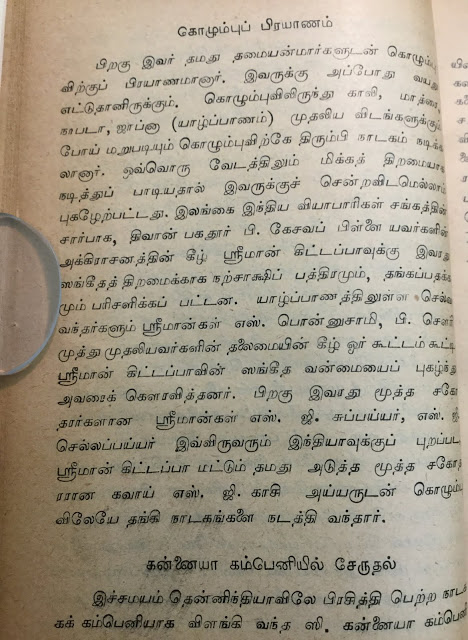 கொழும்புப் பிரயாணம்
பிறகு இவர் தமது தமையன்மார்களுடன் கொழும்
விற்குப் பிரயாணமானார். இவருக்கு அப்போது வயது
எட்டுதானிருக்கும். கொழும்புவிலிருந்து காலி, மாத்
நாபடா, ஜாப்னா (யாழ்ப்பாணம்) முதலிய விடங்களுக்கும்
போய் மறுபடியும் கொழும்புவிற்கே திரும்பி நாடகம் நடிக்க
லானார். ஒவ்வொரு வேடத்திலும் மிக்கத் திறமையாக
நடித்துப் பாடியதால் இவருக்குச் சென்றவிடமெல்லாம்
புகழேற்பட்டது. இலங்கை இந்திய வியாபாரிகள் சங்கத்தின்
சார்பாக, திவான் பகதூர் பி. கேசவப் பிள்ளை யவர்களின்
அக்கிராசனத்தின் கீழ் ஸ்ரீமான் கிட்டப்பாவுக்கு இவரது
ஸங்கீதத் திறமைக்காக நற்சாக்ஷிப் பத்திரமும், தங்கப்பதக்க
மும் பரிசளிக்கப் பட்டன. யாழ்ப்பாணத்திலுள்ள செல்வ
வந்தர்களும் ஸ்ரீமான்கள் எஸ். பொன்னுசாமி, பி. சௌரி
முத்து முதலியவர்களின் தலைமையின் கீழ் ஓர் கூட்டம் கூட்டி
ஸ்ரீமான் கிட்டப்பாவின் ஸங்கீத வன்மையைப் புகழ்ந்து
அவரைக் கௌரவித்தனர். பிறகு இவரது மூத்த சகோ
தரர்களான ஸ்ரீமான்கள் எஸ். ஜி. சுப்பய்யர், எஸ். ஜி.
செல்லப்பய்யர் இவ்விருவரும் இந்தியாவுக்குப் புறப்பட
ஸ்ரீமான் கிட்டப்பா மட்டும் தமது அடுத்த மூத்த சகோத
ரரான கவாய் எஸ். ஜி. காசி அய்யருடன் கொழும்பு
விலேயே தங்கி நாடகங்களை நடத்தி வந்தார்.
கன்னையா கம்பெனியில் சேருதல்
இச்சமயம் தென்னிந்தியாவிலே பிரசித்தி பெற்ற நாடக
கக் கம்பெனியாக விளங்கி வந்த ஸி. கன்னையா கம்பெனி